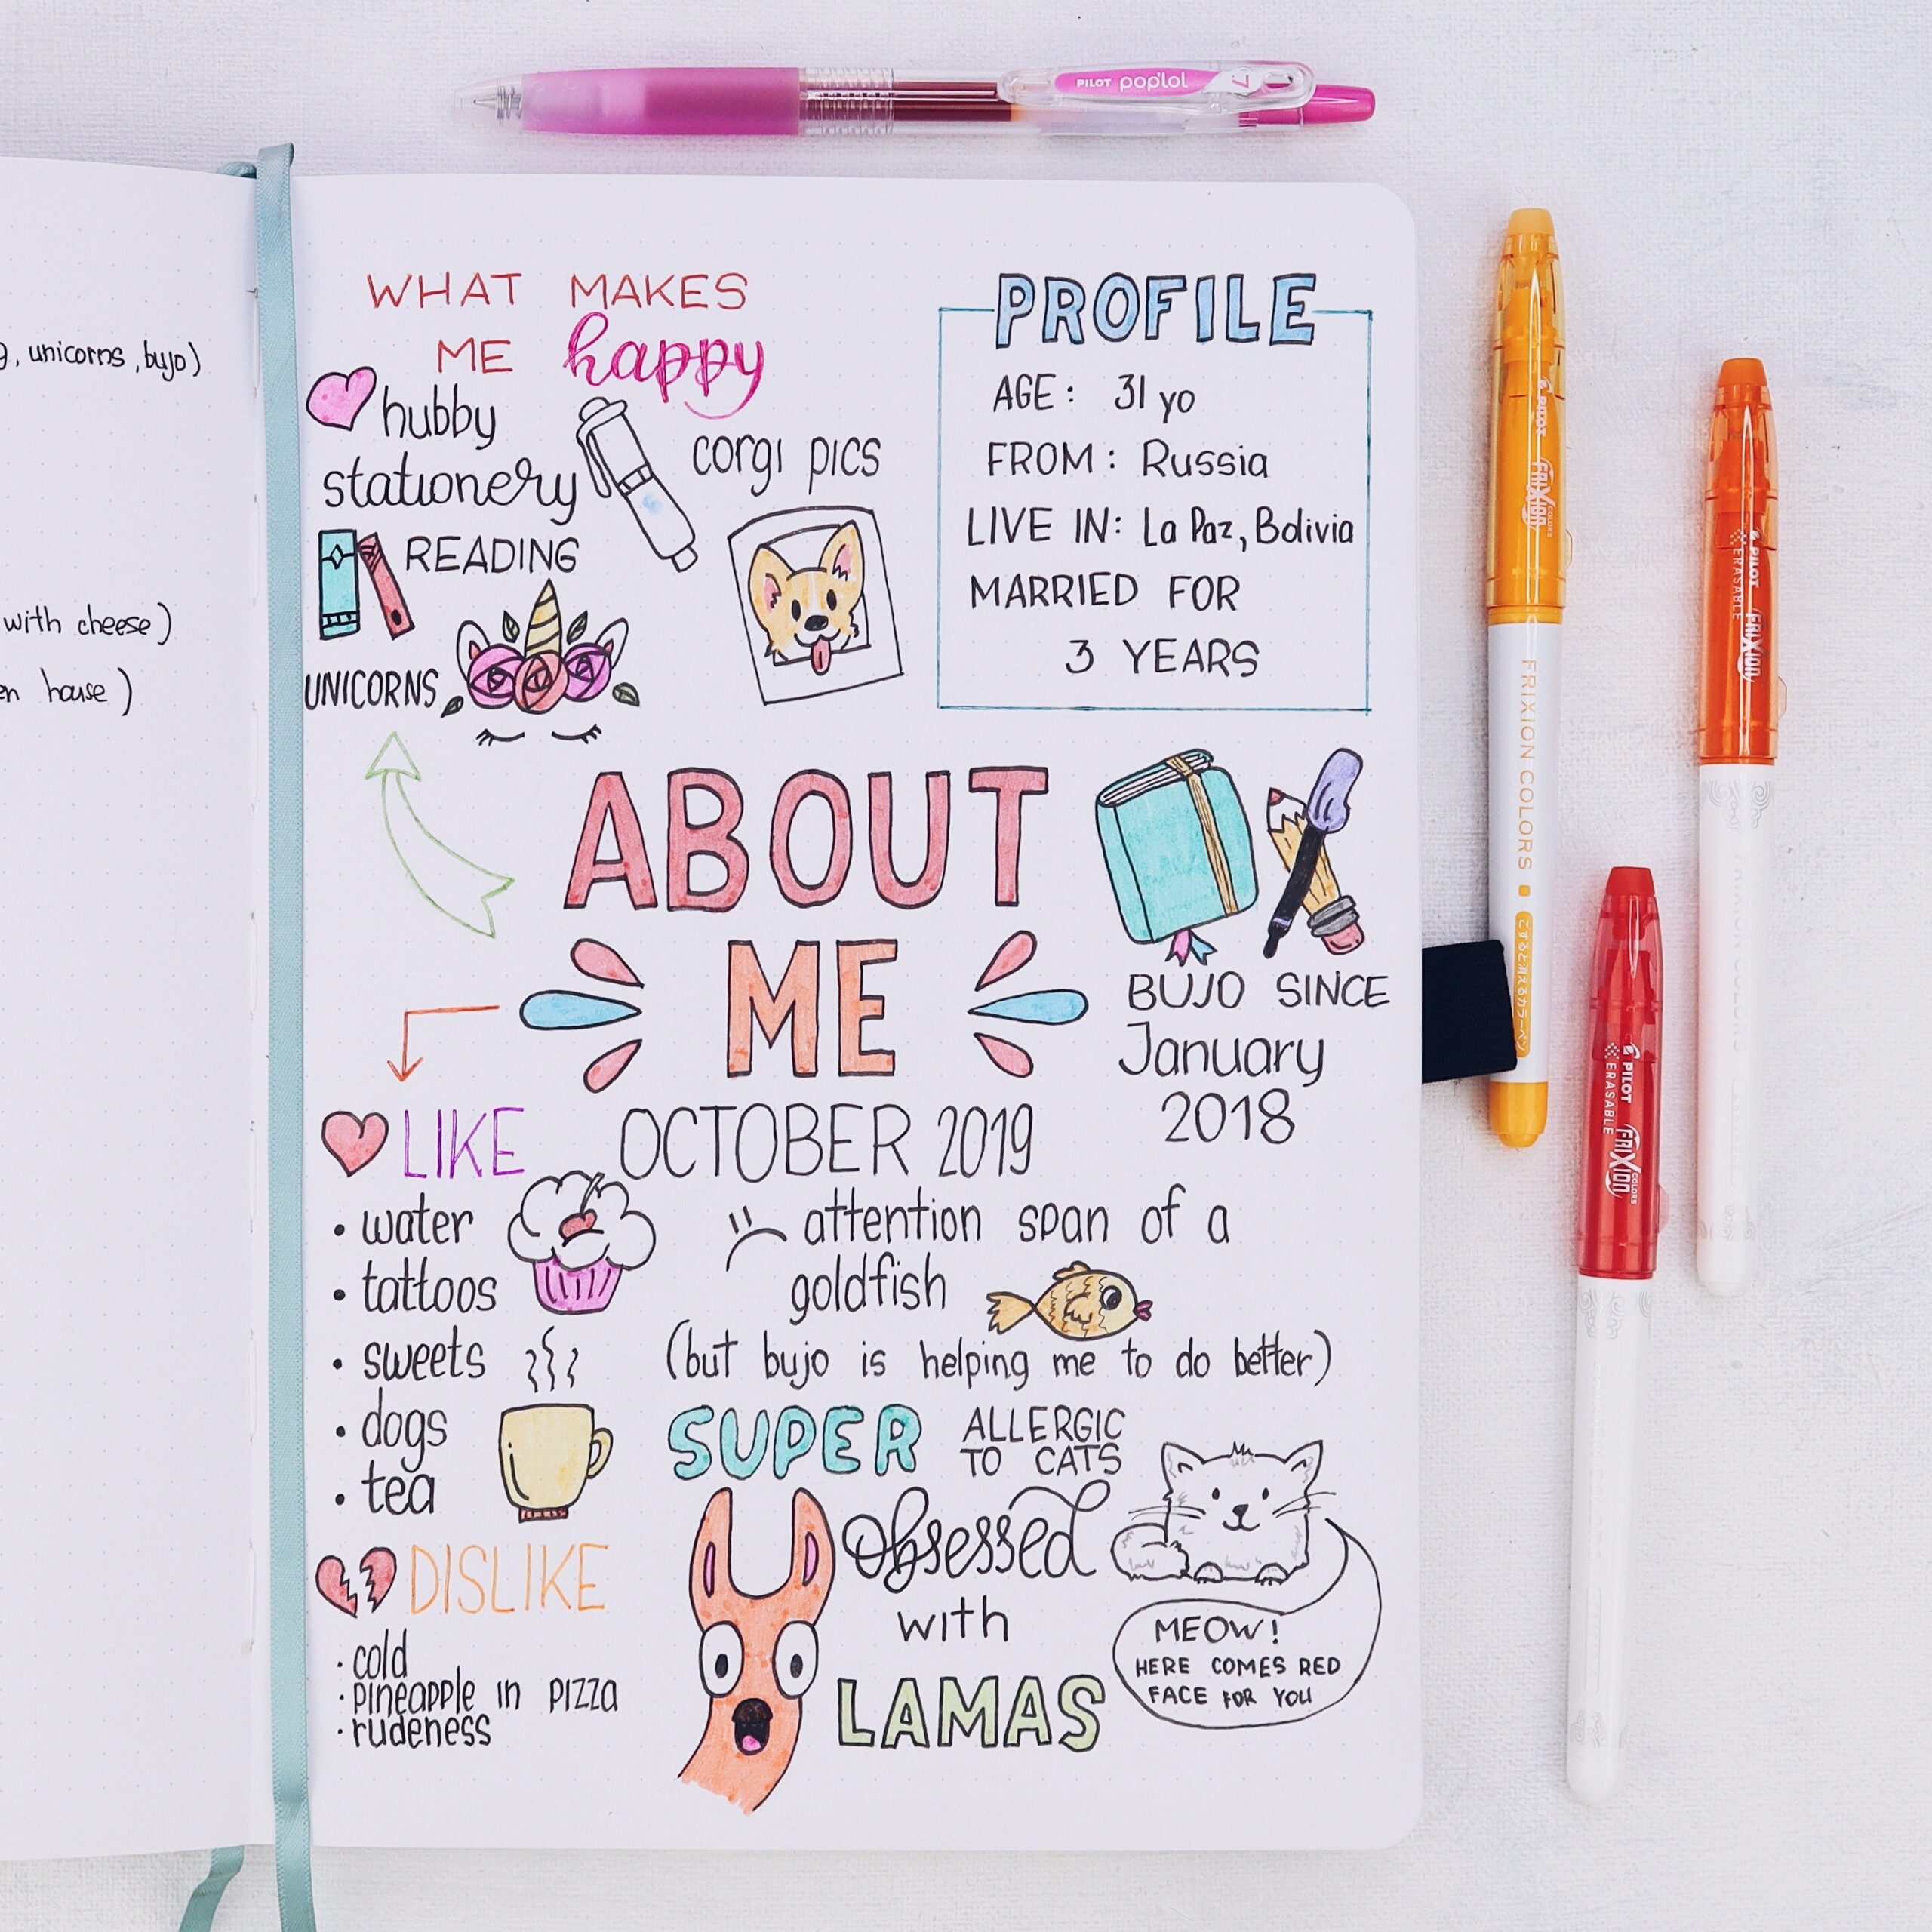 , unicorns, bujo)
with cheese)
house)
WHAT MAKES
ME happy
hubby
stationery
corgi pics
READING
UNICORNS
PROFILE
AGE: 31 yo
FROM: Russia
LIVE IN: La Paz, Bolivia
MARRIED FOR
3 YEARS
ABOUT
ME
OCTOBER 2019
BUJO SINCE
January
2018
LIKE
• water
• tattoos
• sweets
• dogs
• tea
DISLIKE
· cold
· pineapple in pizza
· rudeness
attention span of a
goldfish
(but bujo is helping me to do better)
SUPER
ALLERGIC
TO CATS
Obsessed
with
LAMAS
MEOW!
HERE COMES RED
FACE FOR YOU
PILOT pop'lol
07
PILOT FRIXION COLORS
FRIXION COLORS
こすると消えるカラーペン
PILOT FRIXION
ERASABLE
PILOT FRIXION COLORS
ERASABLE